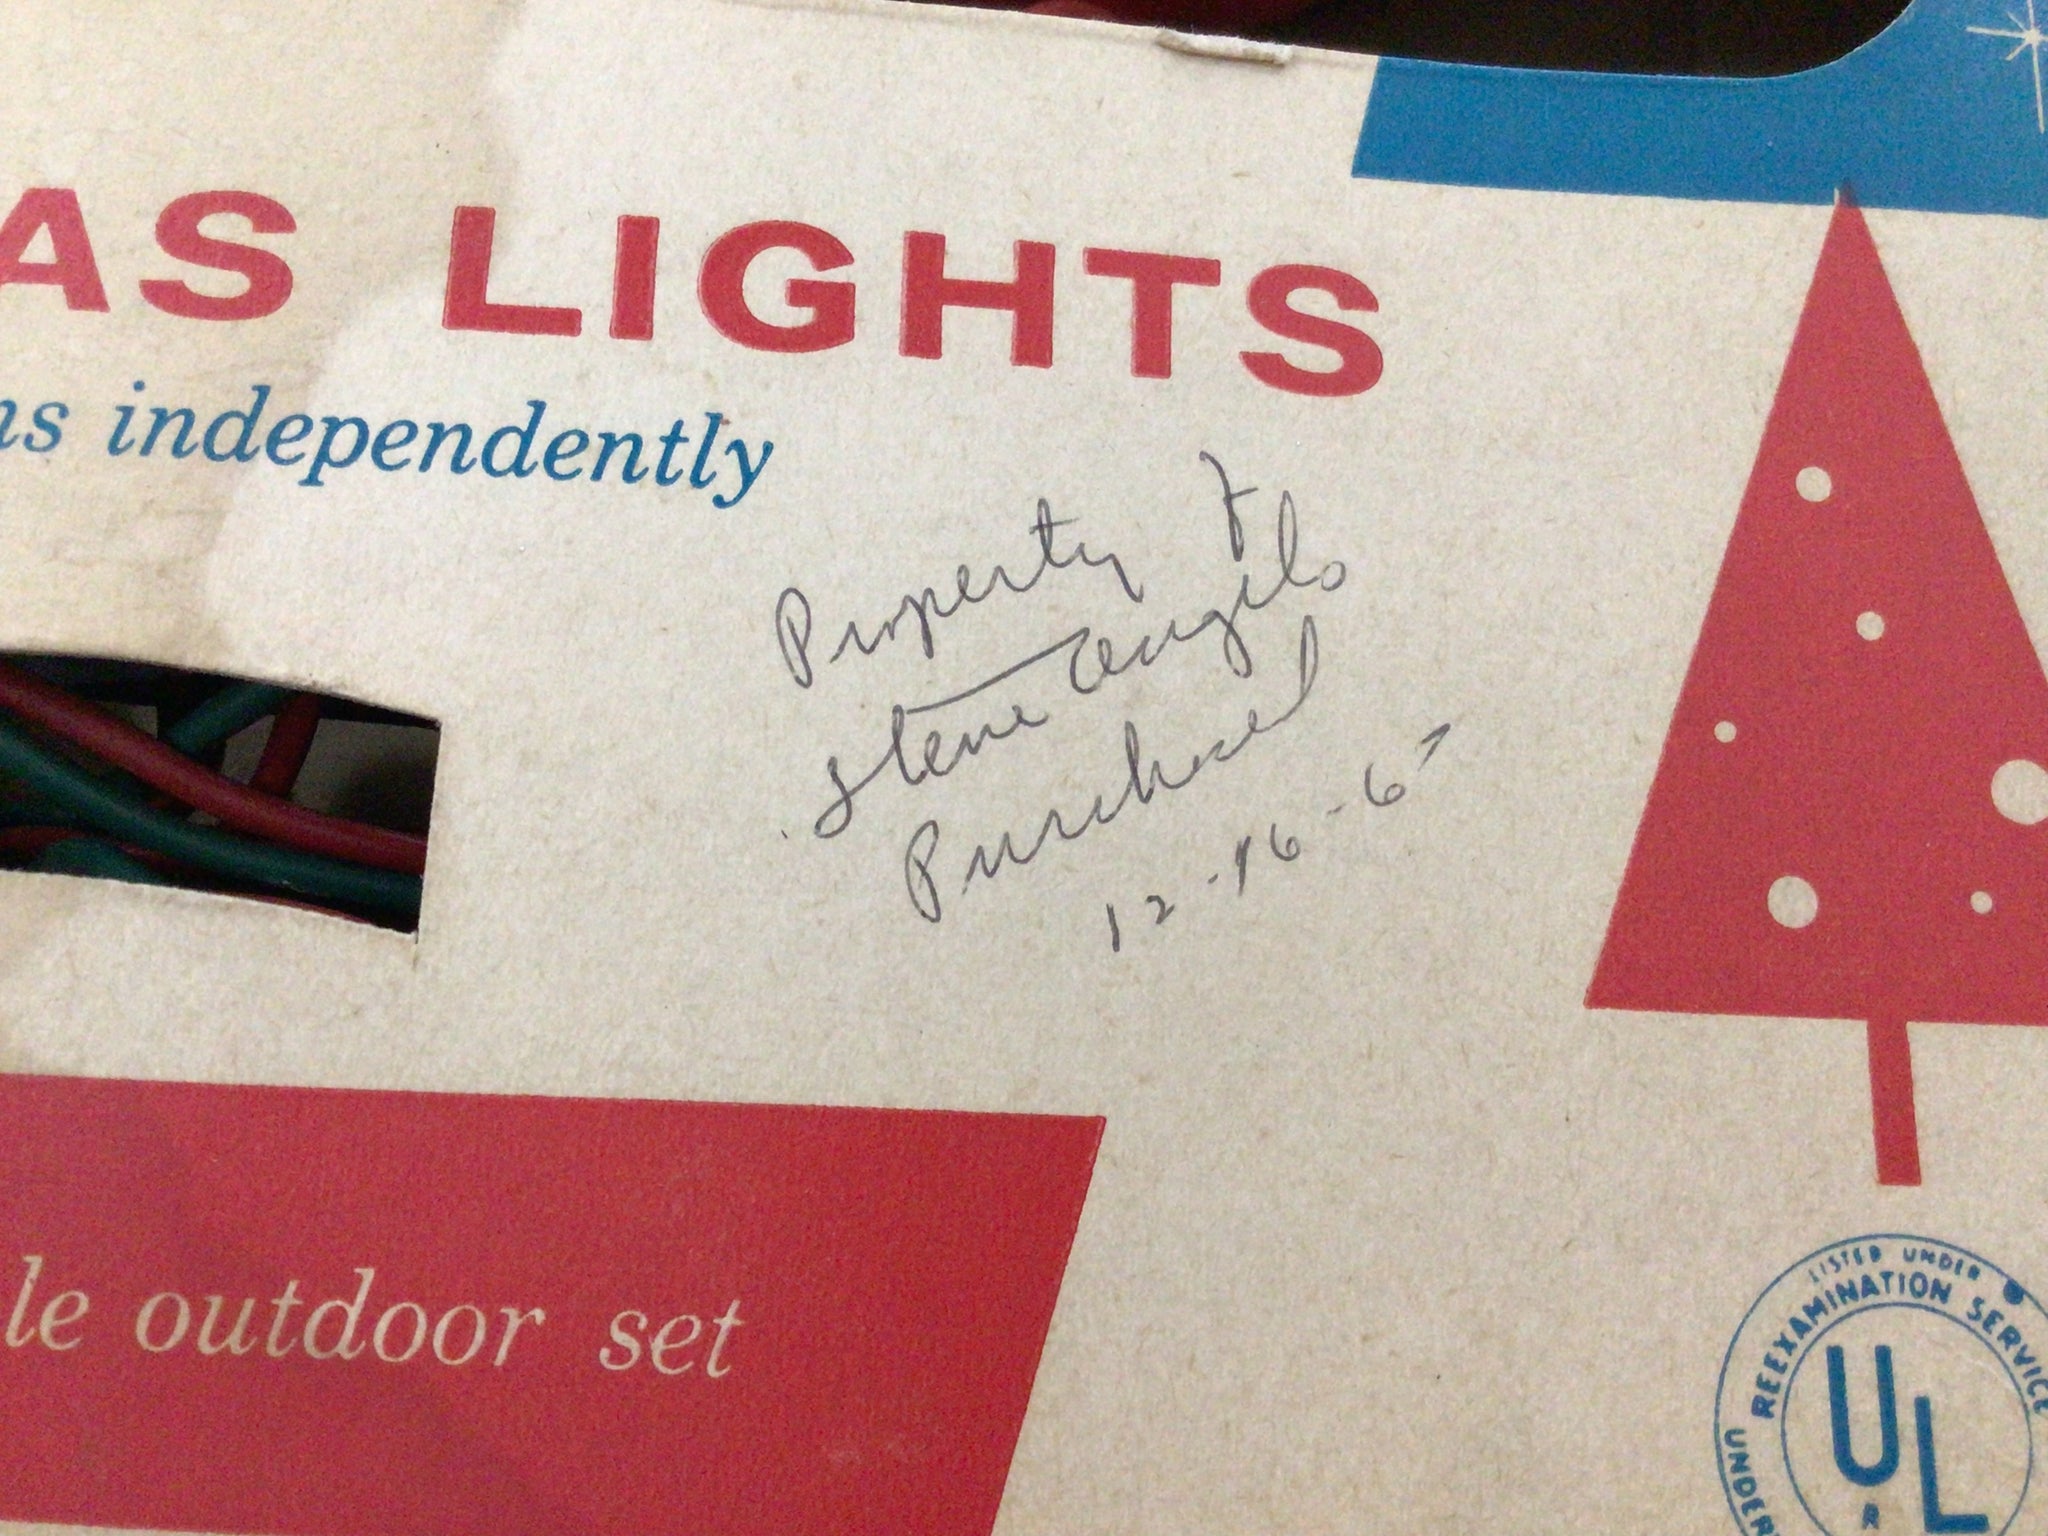 AS LIGHTS
ns independently
Property of
Steve Angelo
Purchased
12-16-67
le outdoor set
LISTED UNDER
REEXAMINATION SERVICE
UNDER
UL
R